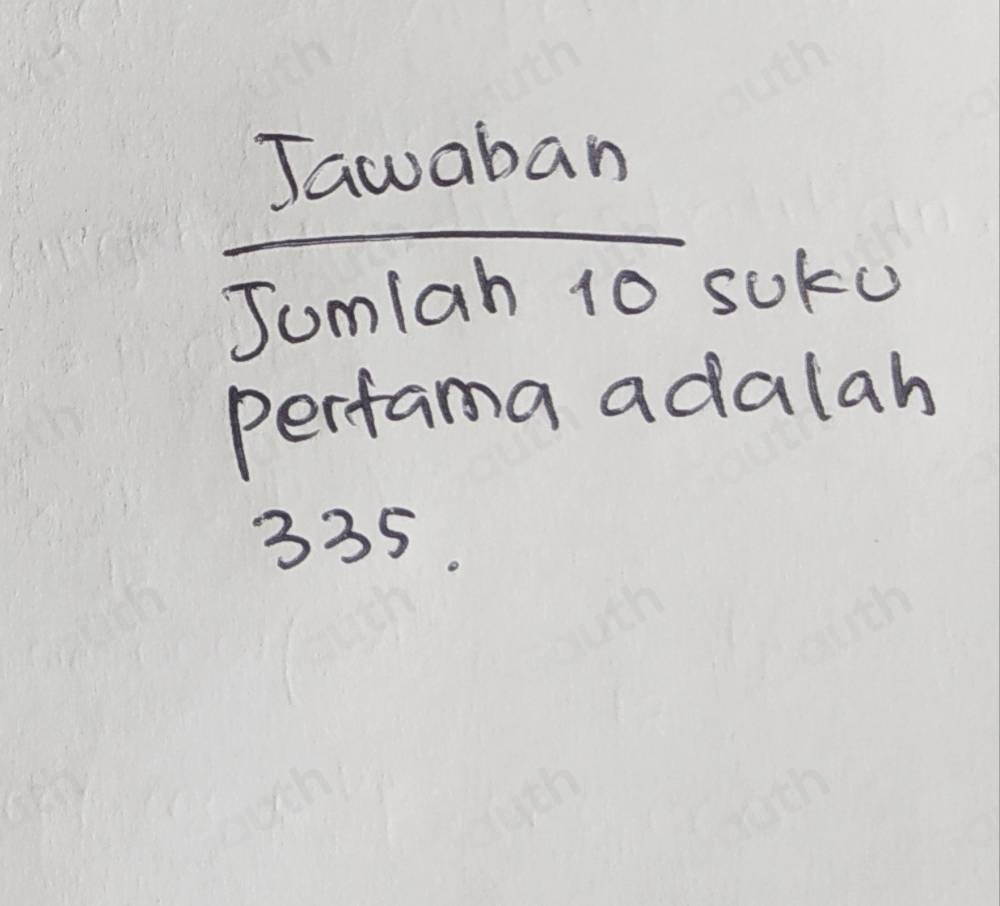 Jawaban
Jumlah 10 suku
pertama adalah
335.